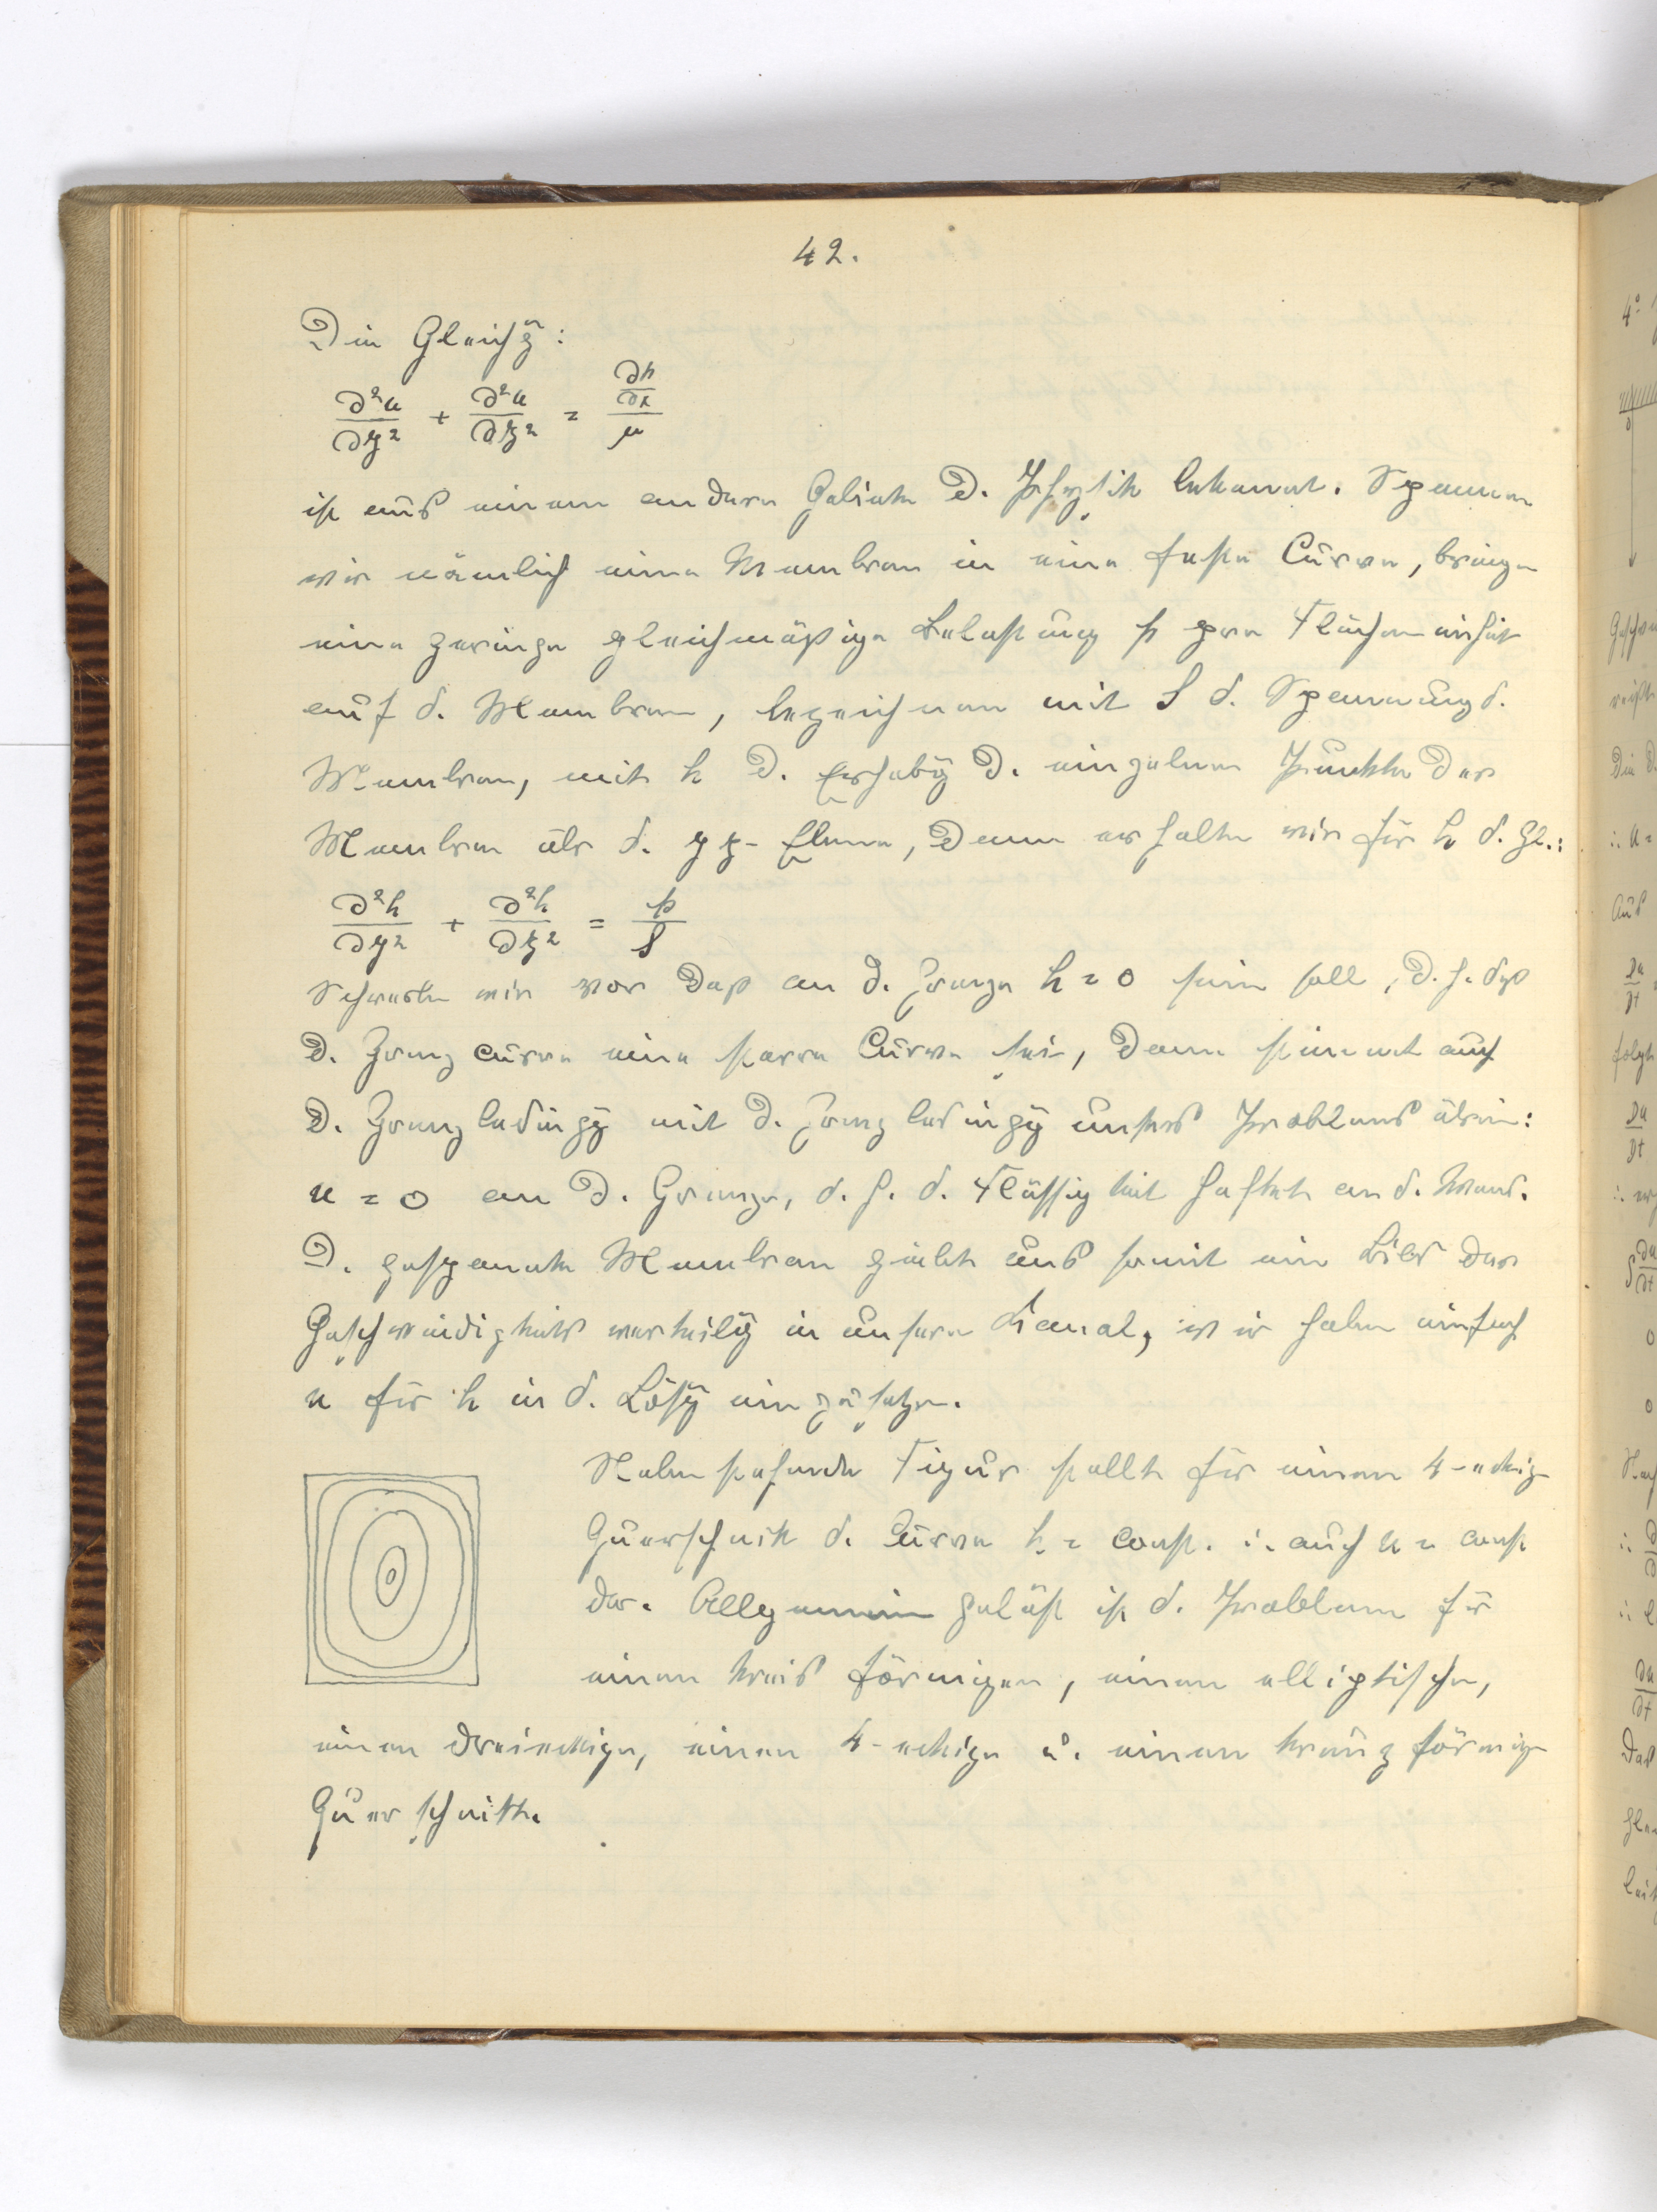 42.
Die Gleichg:
∂²u/∂y² + ∂²u/∂z² = (∂p/∂x)/μ
ist aus einem andern Gebiete d. Physik bekannt. Spannen
wir nämlich eine Membran in eine feste Curve, bringen
eine geringe gleichmäßige Belastung p pro Flächeneinheit
auf d. Membran, bezeichnen mit S d. Spannung d.
Membran, mit h d. Erhebg d. einzelnen Punkte der
Membran über d. yz-Ebene, dann erhalten wir für h d. Gl.:
∂²h/∂y² + ∂²h/∂z² = p/S
wir vor daß an d. Grenze h = 0 sein soll, d. h. daß
d. Grenzcurve eine starre Curve sei, dann stimmt auch
d. Grenzbedingg mit d. Grenzbedingg unsres Problems überein:
u = 0 an d. Grenze, d. h. d. Flüssigkeit haftet an d. Wand.
D. gespannte Membran giebt uns somit ein Bild der
Geschwindigkeitsverteilg in unserm Kanal, wir haben einfach
u für h in d. Lösg einzusetzen.
Nebenstehende Figur stellt für einen 4-eckigen
Querschnitt d. Curven h = const. ∴ auch u = const
dar. Allgemein gelöst ist d. Problem für
einen kreisförmigen, einen elliptischen,
einen dreieckigen, einen 4-eckigen u. einen kranzförmigen
Querschnitt.